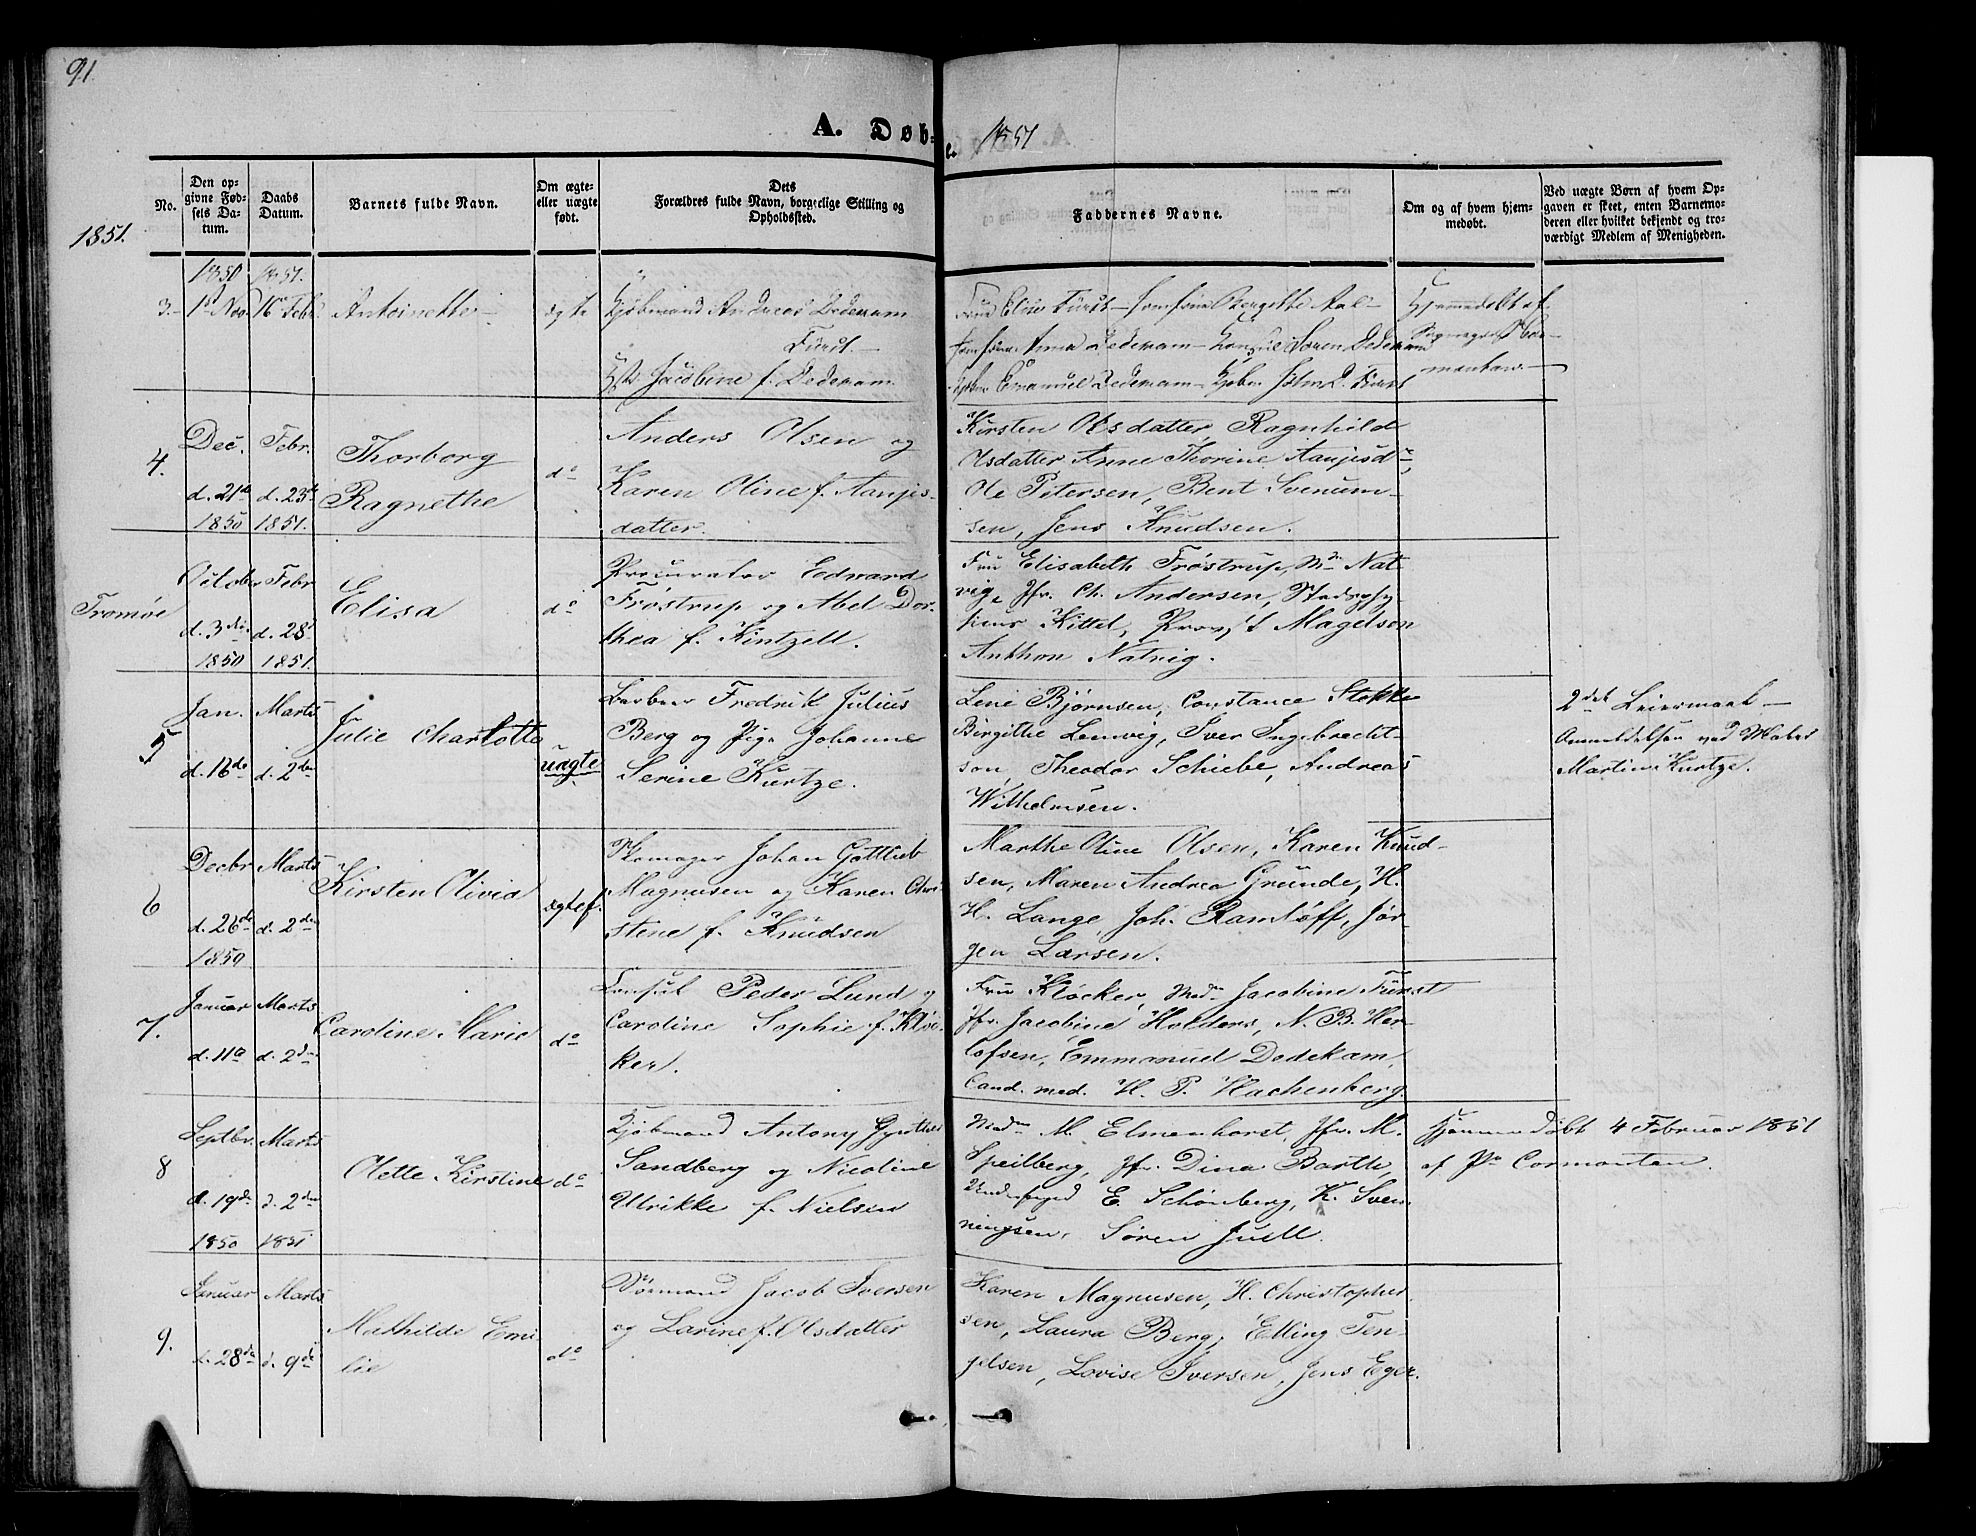 91
A. Døb- e. 1851
1851.
No.
Den op-
givne Fød-
sels Da-
tum.
Daabs
Datum.
Barnets fulde Navn.
Om ægte-
eller uægte
født.
Dets
Forældres fulde Navn, borgerlige Stilling og
Opholdssted.
Faddernes Navne.
Om og af hvem hjem-
medøbt.
Ved uægte Børn af hvem Op-
gaven er skeet, enten Barnemo-
deren eller hvilket bekjendt og tro-
værdigt Medlem af Menigheden.
1850 1851.
3. 1 Nov 16 Febr. Antoinette ægte
Kjøbmand Andreas Dedekam
Fürst
Jacobine f. Dedekam
Fru Elise Fürst Jomfrue Bergithe Aal
Jomfrue Anna Dedekam Konsul Søren Dedekam
Emanuel Dedekam Fürst
Hjemmedøbt af
4. Dec. d. 21de 1850
Febr. d. 23de 1851.
Thorborg
Ragnethe
do
Anders Olsen og
Karen Oline f. Aanjes-
datter.
Kirsten Olsdatter Ragnhild
Olsdatter Anne Thorine Aanjesdr,
Ole Petersen, Bent Svenum-
sen, Jens Knudsen.
Tromøe
October d. 3die 1850
Febr d. 28d 1851.
Elisa
do
Procurator Edward
Frøstrup og Abel Dor-
thea f. Kintzell.
Fru Elisabeth Frøstrup, Mdm Nat-
vig, Jfr. Ch. Andersen, Stadsphy-
sicus Kittel, Provst Magelson
Anthon Natvig.
5 Jan. d. 16de
Marts d. 2den
Julie Charlotte
uægte
Barbeer Fredrik Julius
Berg og Pige Johanne
Serine Kurtze.
Lene Bjørnsen, Constance Stokke
Birgitte Lemvig, Iver Ingebrecht-
son, Theodor Schiebe, Andreas
Wilhelmsen.
2det Leiermaal
Anmeldelsen ved
Martin Kurtze.
6 Decbr d. 26de 1850
Marts d. 2den
Kirsten Olivia
ægtef.
Skomager Johan Gottlieb
Magnusen og Karen Chri-
stene f. Knudsen
Marthe Oline Olsen, Karen Knud-
sen, Maren Andrea Grunde, H.
H. Lange, Joh. Ramløff, Jør-
gen Larsen.
7. Januar d. 11te
Marts d. 2den
Caroline Marie
do
Consul Peder Lund og
Caroline Sophie f. Kløc-
ker.
Fru Kløcker, Mdm Jacobine Fürst
Jfr. Jacobine Holders, N. B. Her-
lofsen, Emmanuel Dedekam,
Cand. med. H. P. Hachenberg.
8 Septbr. d. 19de 1850
Marts d. 2den 1851
Olette Kirstine
do
Kjøbmand Antony Gunther
Sandberg og Nicoline
Ulrikke f. Nielsen
Mdm M. Elmenhorst, Jfr. M.
Speilberg, Jfr. Dina Barth,
E. Schønberg, K. Sven-
ningsen, Søren Juell.
Hjemmedøbt 4 Februar 1851
af Pr Cormontan.
9. Januar d. 28de
Marts d. 9de
Mathilde Emi-
lie
do
Jacob Iversen
og Larine f. Olsdatter
Karen Magnusen, H. Christopher-
sen, Laura Berg, Elling Ten-
gelsen, Lovise Iversen, Jens Eger.